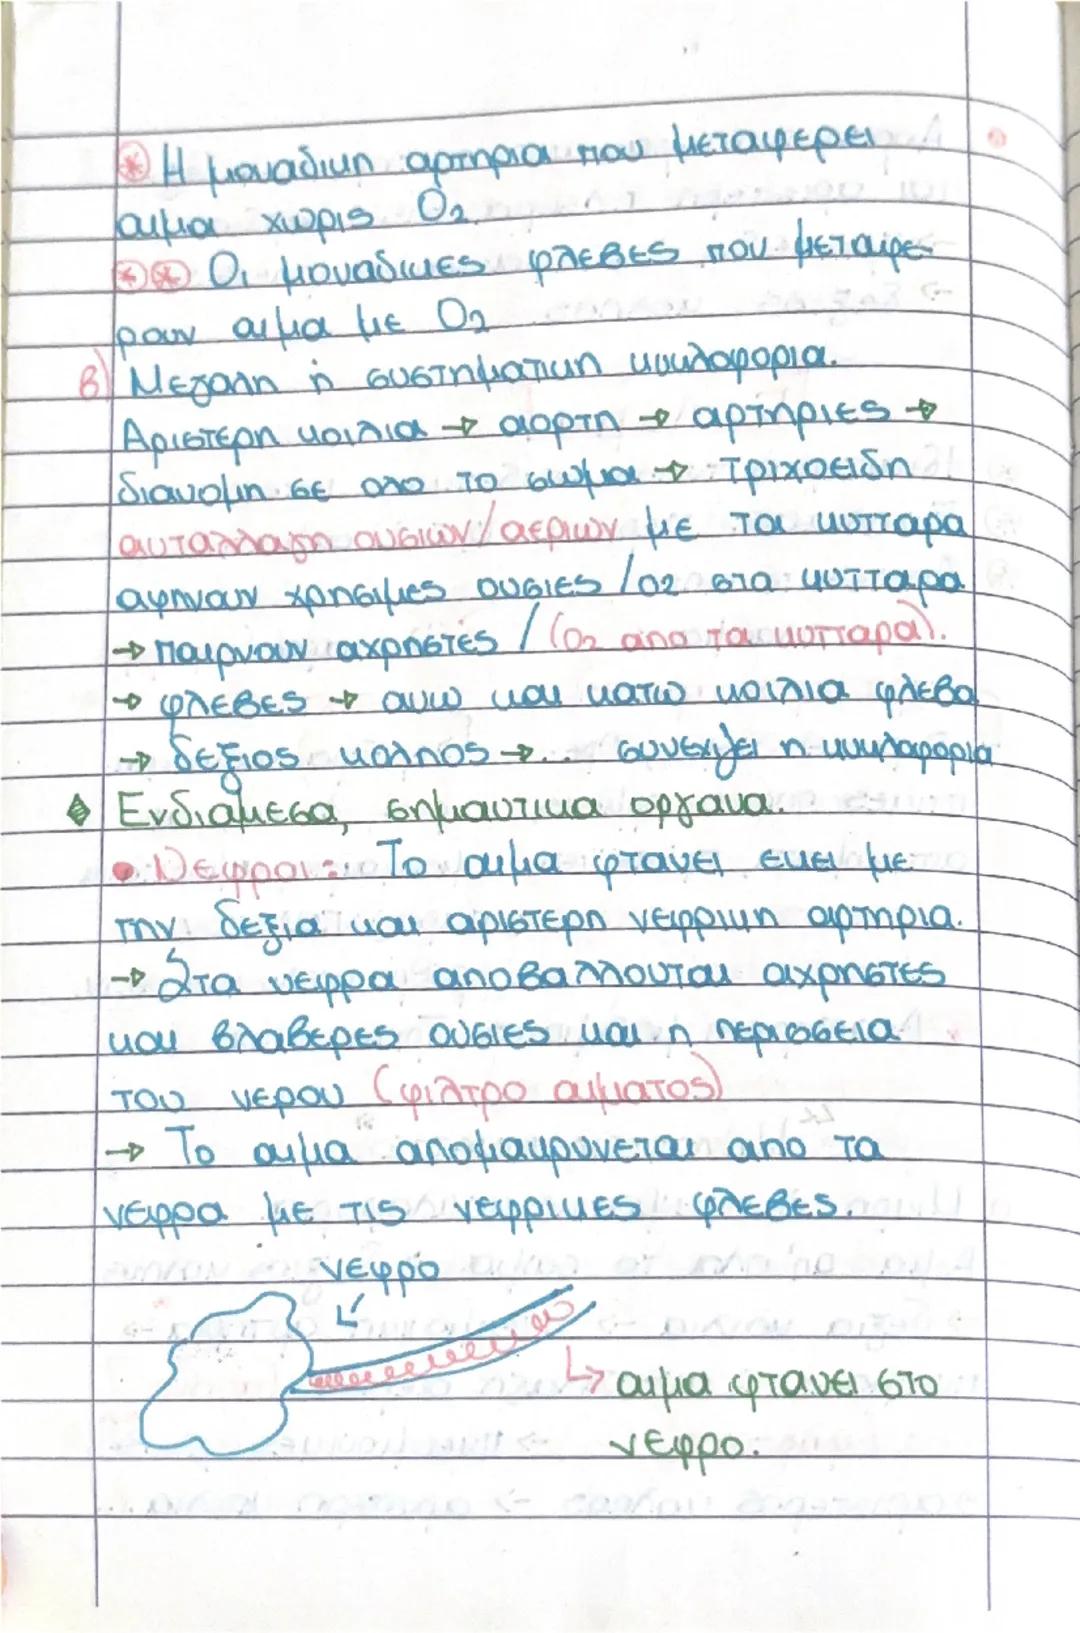 * Η μοναδικη αρτηρια που μεταφερει
αιμα χωρις O2.
** Οι μοναδικες φλεβες που μεταφε-
ρουν αιμα με O2
β) Μεγαλη ή συστηματικη κυκλοφορια.
Αριστερη κοιλια → αορτη → αρτηριες →
διανομη σε ολο το σωμα → τριχοειδη
ανταλλαγη ουσιων/αεριων με τα κυτταρα
αφηναν χρησιμες ουσιες /O2 στα κυτταρα
→ παιρνουν αχρηστες / (O2 απο τα κυτταρα).
→ φλεβες → ανω και κατω κοιλια φλεβα
→ δεξιος κολπος →... συνεχιζει η κυκλοφορια
Ενδιαμεσα, σημαντικα οργανα.
• Νεφροι: Το αιμα φτανει εκει με
την δεξια και αριστερη νεφρικη αρτηρια.
→ Στα νεφρα αποβαλλονται αχρηστες
και βλαβερες ουσιες και η περισσεια
του νερου (φιλτρο αιματος)
→ Το αιμα απομακρυνεται απο τα
νεφρα με τις νεφρικες φλεβες.
νεφρο
↳ αιμα φτανει στο
νεφρο.